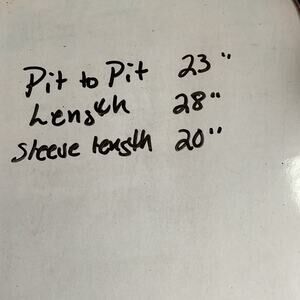 Pit to Pit 23"
Length 28"
Sleeve length 20"